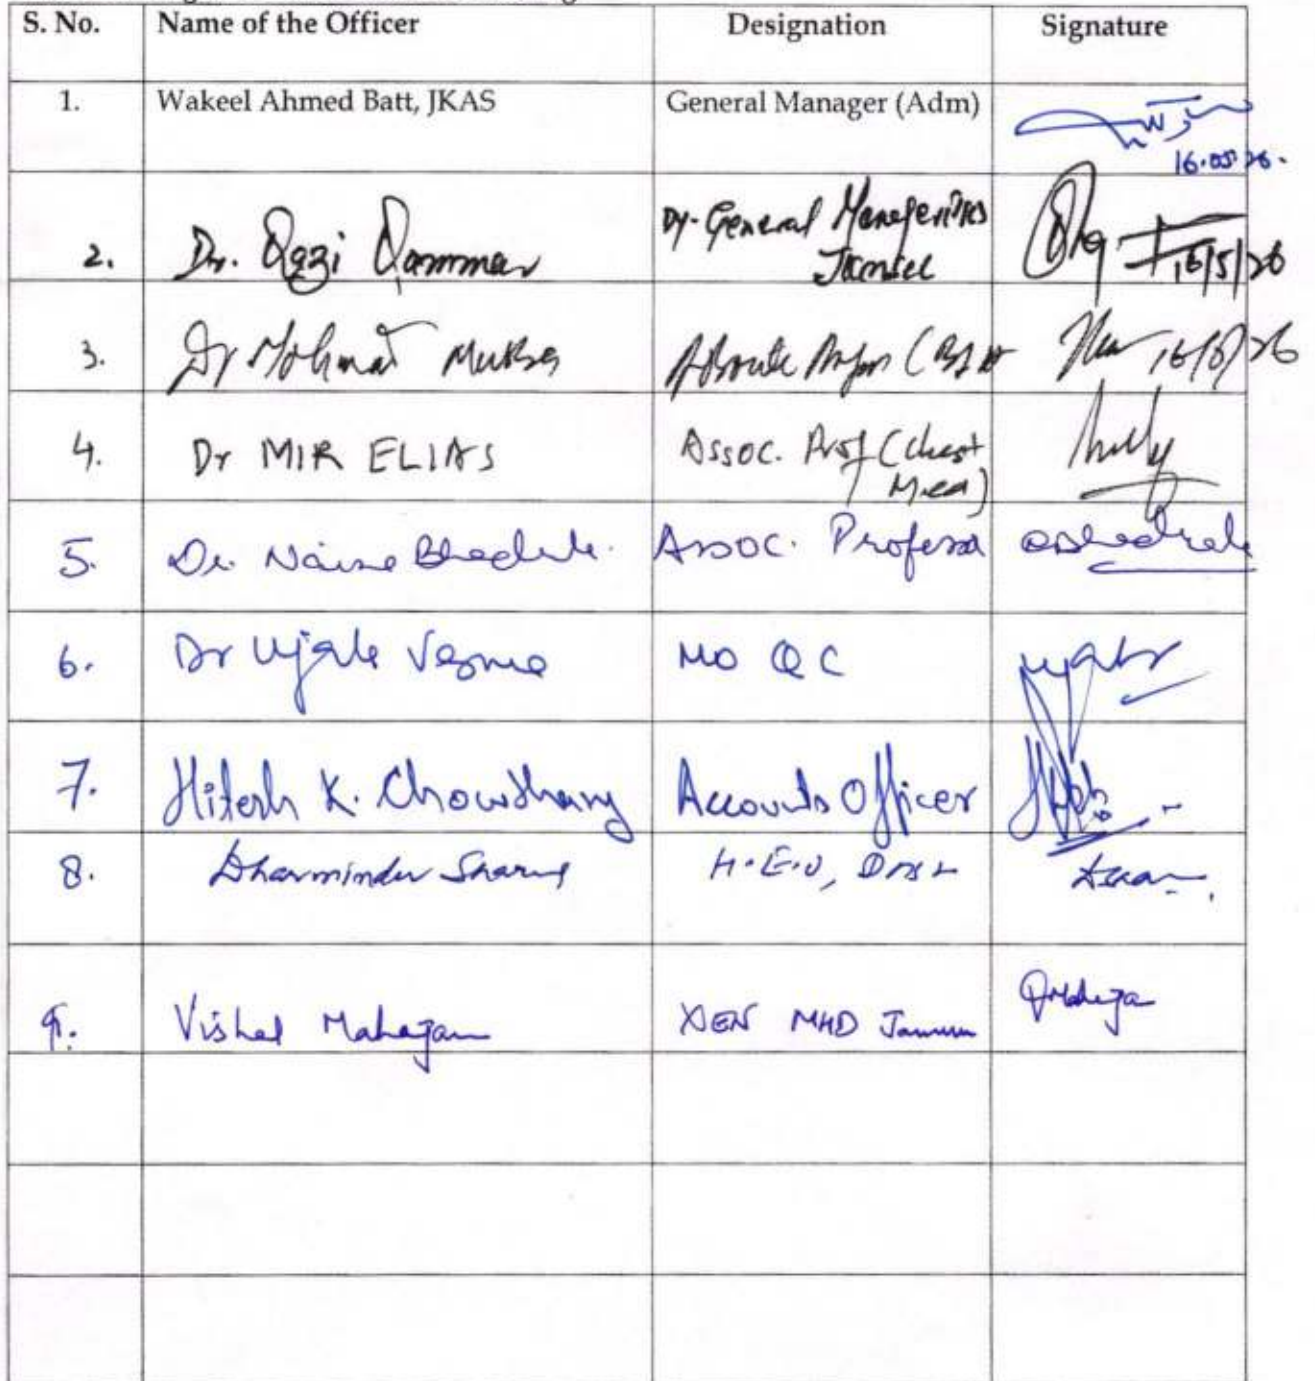 S. No. Name of the Officer Designation Signature
1. Wakeel Ahmed Batt, JKAS General Manager (Adm)
16.05.26.
2. Dr. Qazi Qammar Dy. General Manager
16/5/26
3. Dr 16/5/26
4. Dr MIR ELIAS Assoc. Prof (Chest
Med)
5. Dr. Assoc. Professor
6. Dr Ujala Verma MO QC
7. Hitesh K. Chowdhary Accounts Officer
8. Dharminder Sharma
9. Vishal Mahajan XEN MHD Jammu